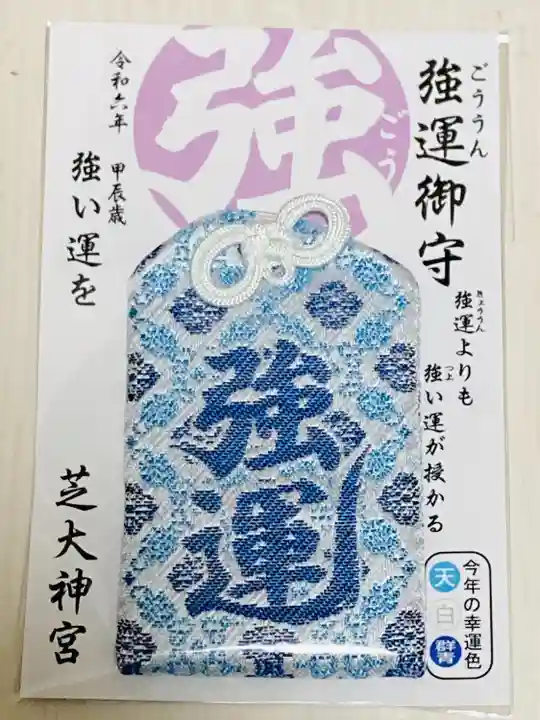 強運御守
ごううん
強運よりも
きょううん
強い運が授かる
つよ
強
ごう
令和六年 甲辰歳
強い運を
芝大神宮
強運
今年の幸運色
天
白
群青